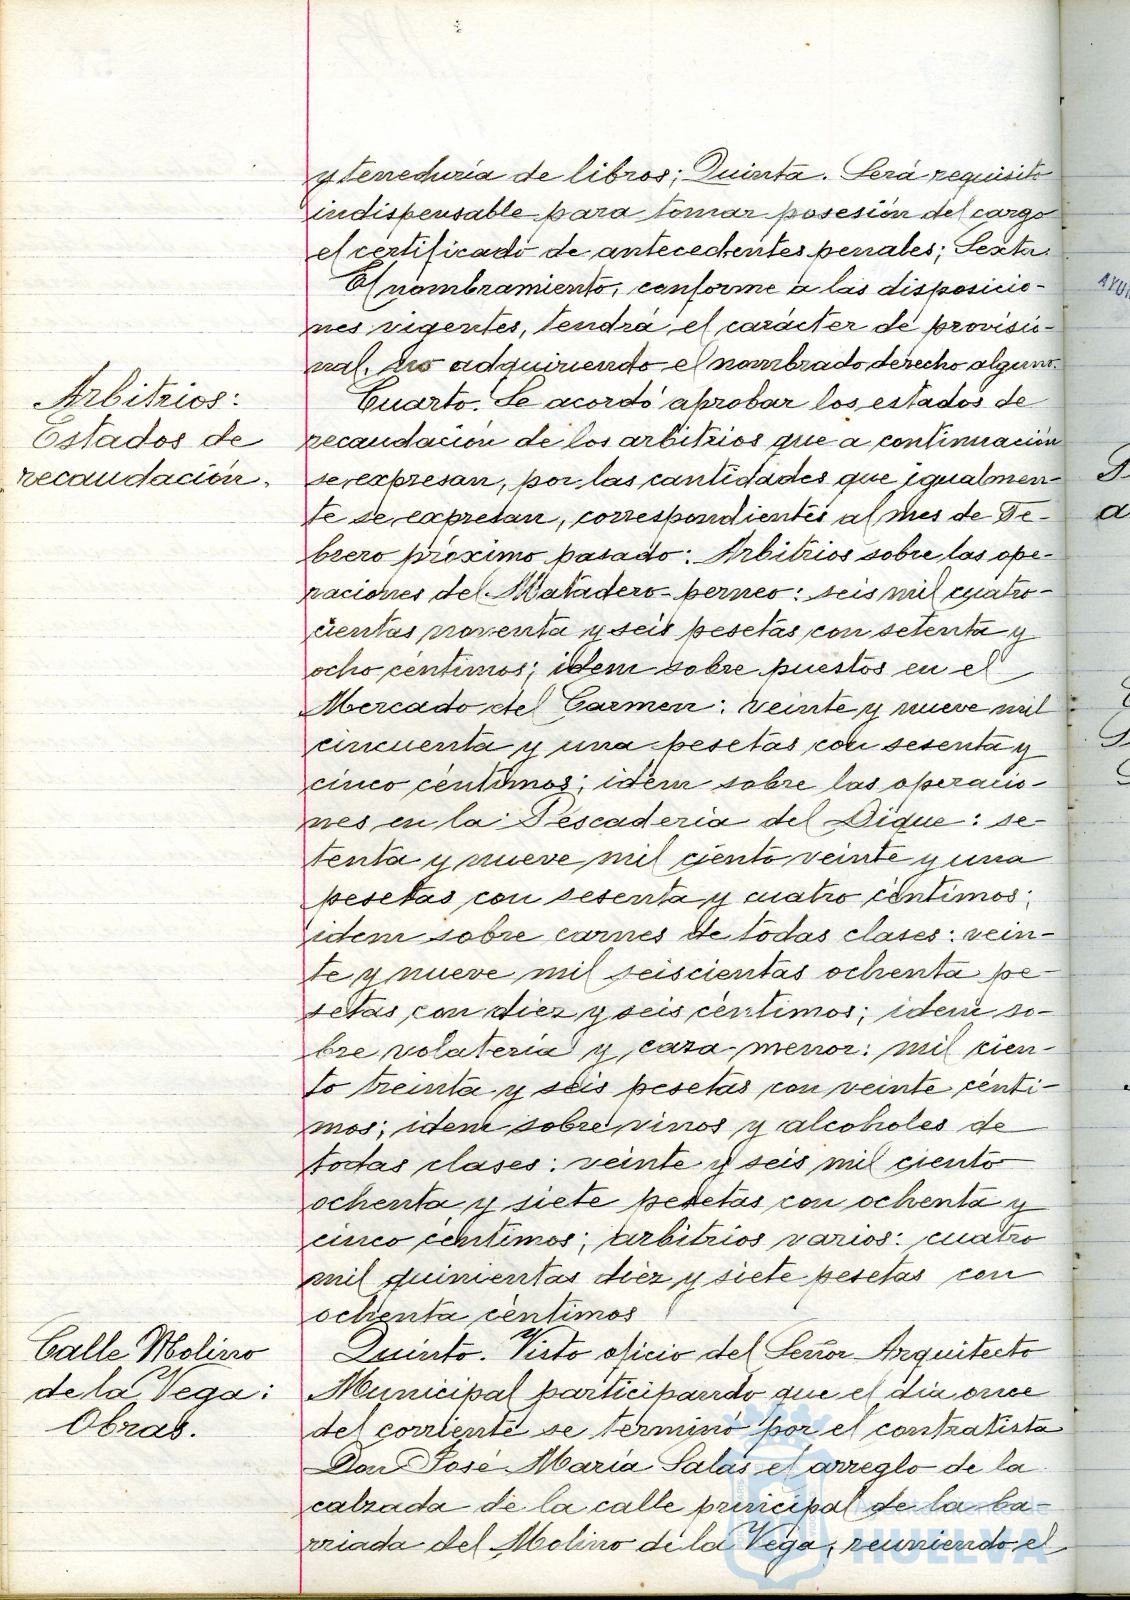 y teneduría de libros; Quinta. Será requisito
indispensable para tomar posesión del cargo
el certificado de antecedentes penales; Sexta.
El nombramiento, conforme a las disposicio-
nes vigentes, tendrá el carácter de provisio-
nal, no adquiriendo el nombrado derecho alguno.
Arbitrios:
Estados de
recaudación.
Cuarto. Se acordó aprobar los estados de
recaudación de los arbitrios que a continuación
se expresan, por las cantidades que igualmen-
te se expresan, correspondientes al mes de Fe-
brero próximo pasado: Arbitrios sobre las ope-
raciones del Matadero perneo: seis mil cuatro-
cientas noventa y seis pesetas con setenta y
ocho céntimos; idem sobre puestos en el
Mercado del Carmen: veinte y nueve mil
cincuenta y una pesetas con sesenta y
cinco céntimos; idem sobre las operacio-
nes en la Pescaderia del Dique: se-
tenta y nueve mil ciento veinte y una
pesetas con sesenta y cuatro céntimos;
idem sobre carnes de todas clases: vein-
te y nueve mil seiscientas ochenta pe-
setas con diez y seis céntimos; idem so-
bre volatería y caza menor: mil cien-
to treinta y seis pesetas con veinte cénti-
mos; idem sobre vinos y alcoholes de
todas clases: veinte y seis mil ciento
ochenta y siete pesetas con ochenta y
cinco céntimos; arbitrios varios: cuatro
mil quinientas diez y siete pesetas con
ochenta céntimos
Calle Molino
de la Vega:
Obras.
Quinto. Visto oficio del Señor Arquitecto
Municipal participando que el día once
del corriente se terminó por el contratista
Don José María Salas el arreglo de la
calzada de la calle principal de la ba-
rriada del Molino de la Vega, reuniendo el
Ayuntamiento de
HUELVA